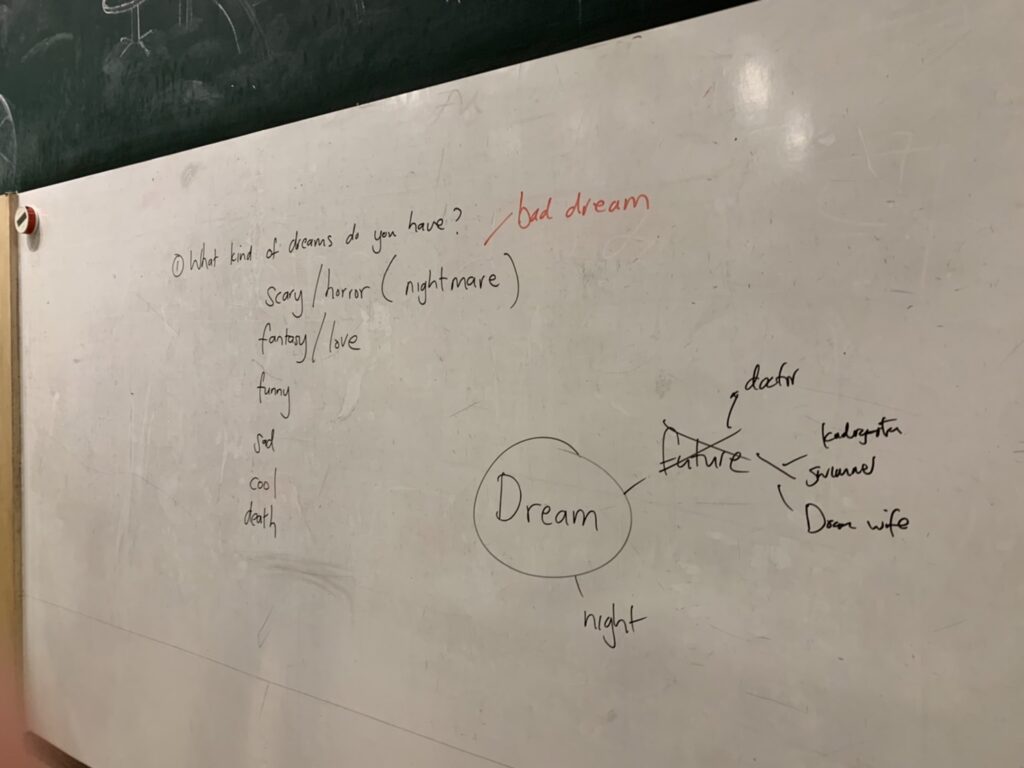 ① What kind of dreams do you have?
bad dream
scary/horror (nightmare)
fantasy/love
funny
sad
cool
death
doctor
future
Dream
wife
night